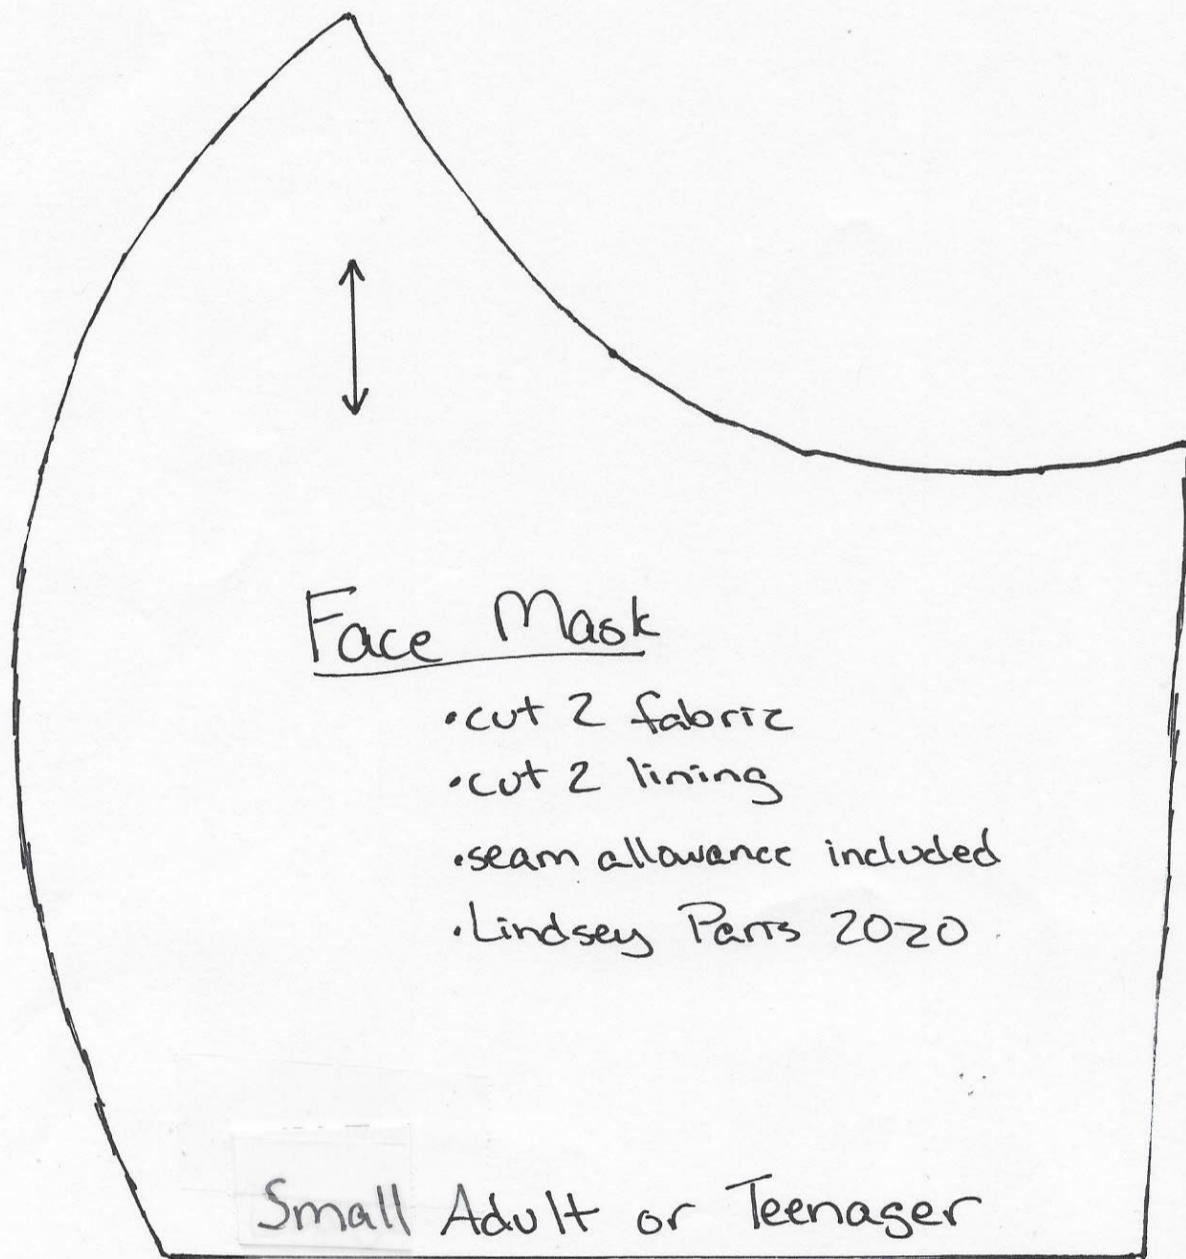 Face Mask
•cut 2 fabric
•cut 2 lining
•seam allowance included
•Lindsey Parris 2020
Small Adult or Teenager